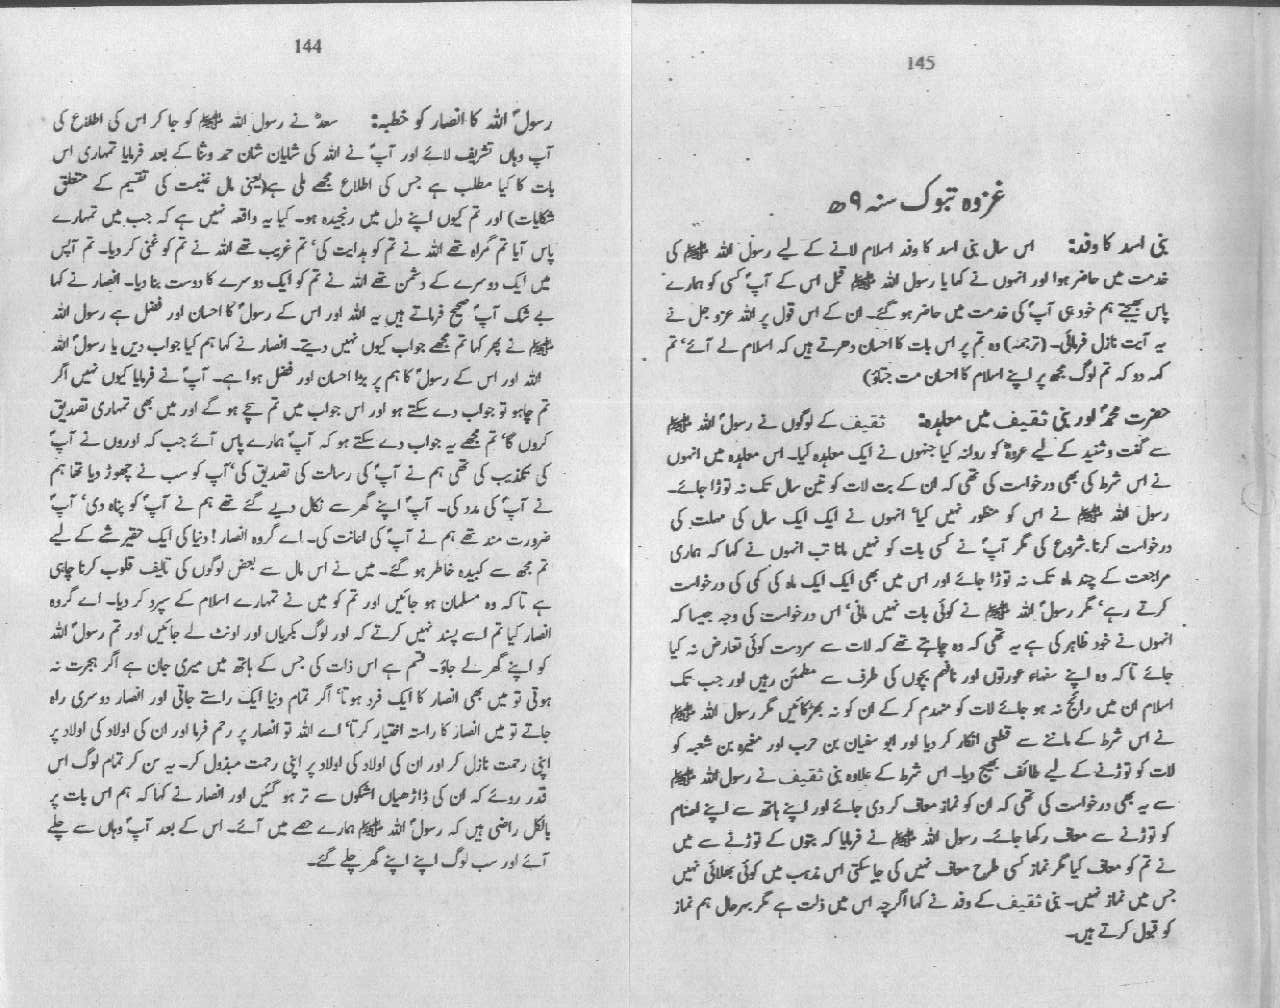 144
رسولؐ اللہ کا انصار کو خطبہ: سعدؓ نے رسول اللہ ﷺ کو جا کر اس کی اطلاع کی
آپ وہاں تشریف لائے اور آپؐ نے اللہ کی شایان شان حمد وثنا کے بعد فرمایا تمہاری اس
بات کا کیا مطلب ہے جس کی اطلاع مجھے ملی ہے(یعنی مال غنیمت کی تقسیم کے متعلق
شکایات) اور تم کیوں اپنے دل میں رنجیدہ ہو۔ کیا یہ واقعہ نہیں ہے کہ جب میں تمہارے
پاس آیا تم گمراہ تھے اللہ نے تم کو ہدایت کی‘ تم غریب تھے اللہ نے تم کو غنی کر دیا۔ تم آپس
میں ایک دوسرے کے دشمن تھے اللہ نے تم کو ایک دوسرے کا دوست بنا دیا۔ انصار نے کہا
بے شک آپؐ صحیح فرماتے ہیں یہ اللہ اور اس کے رسولؐ کا احسان اور فضل ہے رسول اللہ
ﷺ نے پھر کہا تم مجھے جواب کیوں نہیں دیتے۔ انصار نے کہا ہم کیا جواب دیں یا رسولؐ اللہ
اللہ اور اس کے رسولؐ کا ہم پر بڑا احسان اور فضل ہوا ہے۔ آپؐ نے فرمایا کیوں نہیں اگر
تم چاہو تو جواب دے سکتے ہو اور اس جواب میں تم سچے ہو گے اور میں بھی تمہاری تصدیق
کروں گا‘ تم مجھے یہ جواب دے سکتے ہو کہ آپؐ ہمارے پاس آئے جب کہ اوروں نے آپؐ
کی تکذیب کی تھی ہم نے آپؐ کی رسالت کی تصدیق کی‘ آپ کو سب نے چھوڑ دیا تھا ہم
نے آپؐ کی مدد کی۔ آپؐ اپنے گھر سے نکال دیے گئے تھے ہم نے آپؐ کو پناہ دی‘ آپؐ
ضرورت مند تھے ہم نے آپؐ کی اعانت کی۔ اے گروہ انصار! دنیا کی ایک حقیر شے کے لیے
تم مجھ سے کبیدہ خاطر ہو گئے۔ میں نے اس مال سے بعض لوگوں کی تالیف قلوب کرنا چاہی
ہے تا کہ وہ مسلمان ہو جائیں اور تم کو میں نے تمہارے اسلام کے سپرد کر دیا۔ اے گروہ
انصار کیا تم اسے پسند نہیں کرتے کہ اور لوگ بکریاں اور اونٹ لے جائیں اور تم رسولؐ اللہ
کو اپنے گھر لے جاؤ۔ قسم ہے اس ذات کی جس کے ہاتھ میں میری جان ہے اگر ہجرت نہ
ہوتی تو میں بھی انصار کا ایک فرد ہوتا‘ اگر تمام دنیا ایک راستے جاتی اور انصار دوسری راہ
جاتے تو میں انصار کا راستہ اختیار کرتا‘ اے اللہ تو انصار پر رحم فرما اور ان کی اولاد کی اولاد پر
اپنی رحمت نازل کر اور ان کی اولاد کی اولاد پر اپنی رحمت مبذول کر۔ یہ سن کر تمام لوگ اس
قدر روئے کہ ان کی ڈاڑھیاں اشکوں سے تر ہو گئیں اور انصار نے کہا کہ ہم اس بات پر
بالکل راضی ہیں کہ رسولؐ اللہ ﷺ ہمارے حصے میں آئے۔ اس کے بعد آپؐ وہاں سے چلے
آئے اور سب لوگ اپنے اپنے گھر چلے گئے۔
145
غزوہ تبوک سنہ ۹ ھ
بنی اسد کا وفد: اس سال بنی اسد کا وفد اسلام لانے کے لیے رسول اللہ ﷺ کی
خدمت میں حاضر ہوا اور انہوں نے کہا یا رسول اللہ ﷺ قبل اس کے آپؐ کسی کو ہمارے
پاس بھیجتے ہم خود ہی آپؐ کی خدمت میں حاضر ہو گئے۔ ان کے اس قول پر اللہ عزوجل نے
یہ آیت نازل فرمائی۔ (ترجمہ) وہ تم پر اس بات کا احسان دھرتے ہیں کہ اسلام لے آئے‘ تم
کہہ دو کہ تم لوگ مجھ پر اپنے اسلام کا احسان مت جتاؤ)
حضرت محمدؐ اور بنی ثقیف میں معاہدہ: ثقیف کے لوگوں نے رسولؐ اللہ ﷺ
سے گفت و شنید کے لیے عروہؓ کو روانہ کیا جنہوں نے ایک معاہدہ کیا۔ اس معاہدہ میں انہوں
نے اس شرط کی بھی درخواست کی تھی کہ ان کے بت لات کو تین سال تک نہ توڑا جائے۔
رسول اللہ ﷺ نے اس کو منظور نہیں کیا‘ انہوں نے ایک ایک سال کی مہلت کی
درخواست کرنا شروع کی مگر آپؐ نے کسی بات کو نہیں مانا تب انہوں نے کہا کہ ہماری
مراجعت کے چند ماہ تک نہ توڑا جائے اور اس میں بھی ایک ایک ماہ کی کمی کی درخواست
کرتے رہے‘ مگر رسولؐ اللہ ﷺ نے کوئی بات نہیں مانی‘ اس درخواست کی وجہ جیسا کہ
انہوں نے خود ظاہر کی ہے یہ تھی کہ وہ چاہتے تھے کہ لات سے سردست کوئی تعارض نہ کیا
جائے تا کہ وہ اپنے سفہاء عورتوں اور نافہم بچوں کی طرف سے مطمئن رہیں اور جب تک
اسلام ان میں رائج نہ ہو جائے لات کو منہدم کر کے ان کو نہ بھڑکائیں مگر رسول اللہ ﷺ
نے اس شرط کے ماننے سے قطعی انکار کر دیا اور ابو سفیان بن حرب اور مغیرہ بن شعبہ کو
لات کو توڑنے کے لیے طائف بھیج دیا۔ اس شرط کے علاوہ بنی ثقیف نے رسول اللہ ﷺ
سے یہ بھی درخواست کی تھی کہ ان کو نماز معاف کر دی جائے اور اپنے ہاتھ سے اپنے اصنام
کو توڑنے سے معاف رکھا جائے۔ رسول اللہ ﷺ نے فرمایا کہ بتوں کے توڑنے سے میں
نے تم کو معاف کیا مگر نماز کسی طرح معاف نہیں کی جا سکتی اس مذہب میں کوئی بھلائی نہیں
جس میں نماز نہیں۔ بنی ثقیف کے وفد نے کہا اگرچہ اس میں ذلت ہے مگر بہرحال ہم نماز
کو قبول کرتے ہیں۔